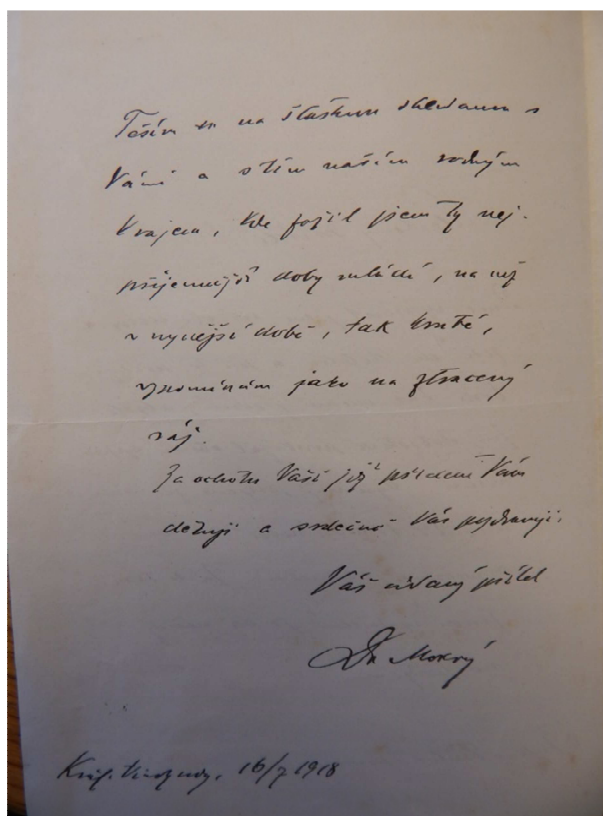 Těším se na šťastnou shledanou s
Vámi a s tím naším rodným
krajem, kde požil jsem ty nej-
příjemnější doby mládí, na něž
v nynější době, tak kruté,
vzpomínám jako na ztracený
ráj.
Za ochotu Vaši již předem Vám
děkuji a srdečně Vás pozdravuji.
Váš oddaný přítel
Dr Mokrý
16/7 1918